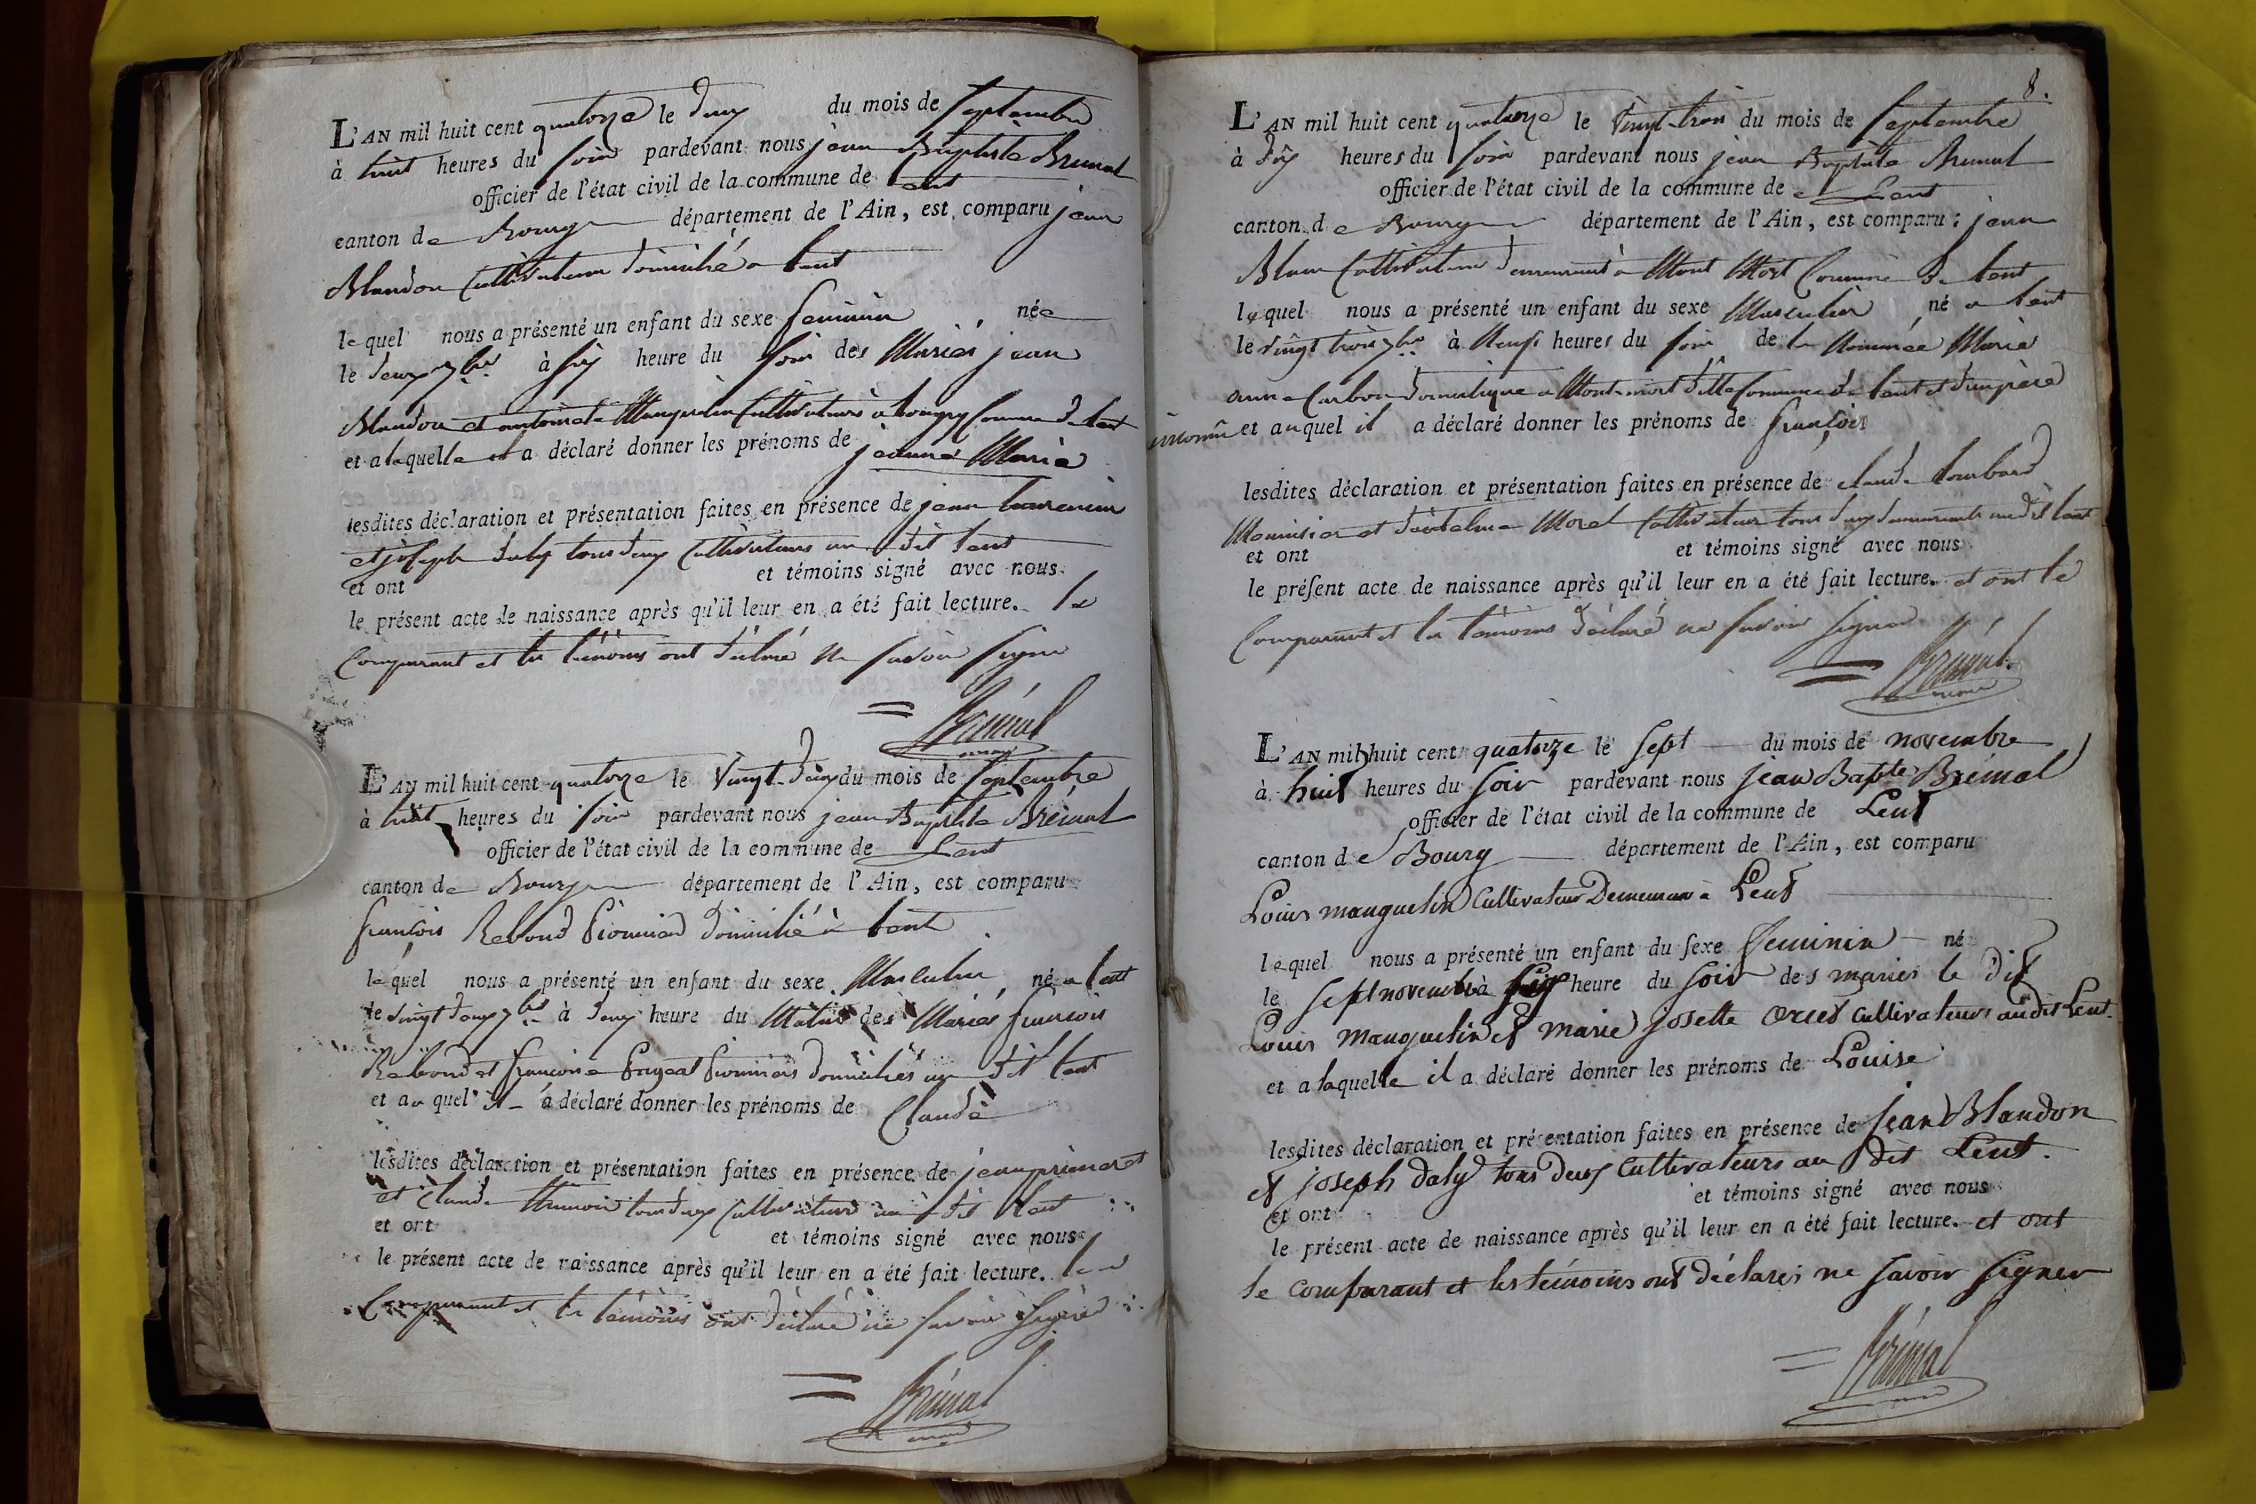 L'AN mil huit cent quatorze le deux du mois de septembre
à huit heures du soir pardevant nous jean Baptiste Brémal
officier de l'état civil de la commune de Lent
canton de Bourg département de l'Ain, est comparu jean
Blandon Cultivateur domicilié a Lent
lequel nous a présenté un enfant du sexe feminin, née
le deux 7bre à six heure du soir des Mariés jean
Blandon et antoinete Manguelin Cultivateurs à Commune de Lent
et a laquelle a déclaré donner les prénoms de jeanne Marie
lesdites déclaration et présentation faites en présence de jean
et joseph daly tous deux Cultivateurs au dit Lent
et ont et témoins signé avec nous
le présent acte de naissance après qu'il leur en a été fait lecture. le
Comparant et les témoins ont déclaré ne savoir signer
Brémal
maire
L'AN mil huit cent quatorze le vingt-deux du mois de septembre
à huit heures du soir pardevant nous jean Baptiste Brémal
officier de l'état civil de la commune de Lent
canton de Bourg département de l'Ain, est comparu
françois Rebond Pionnier domicilié à Lent
lequel nous a présenté un enfant du sexe Masculin, né a Lent
le vingt deux 7bre à deux heure du Matin des Mariés françois
Rebond et françoise Pionniers domiciliés au dit Lent
et au quel il a déclaré donner les prénoms de Claude
lesdites déclaration et présentation faites en présence de jean
et Claude tous deux Cultivateurs au dit Lent
et ont et témoins signé avec nous
le présent acte de naissance après qu'il leur en a été fait lecture. le
Comparant et les témoins ont déclaré ne savoir signer
Brémal
maire
8.
L'AN mil huit cent quatorze le vingt-trois du mois de septembre
à dix heures du soir pardevant nous jean Baptiste Brémal
officier de l'état civil de la commune de Lent
canton de Bourg département de l'Ain, est comparu : jean
Blanc Cultivateur demeurant à Mont Mort Commune de Lent
lequel nous a présenté un enfant du sexe Masculin né a Lent
le vingt trois 7bre à Neuf heures du soir de la Nommée Marie
anne Carbon domestique a Montmort dite Commune de Lent et d'un père
inconnu et auquel il a déclaré donner les prénoms de françois
lesdites déclaration et présentation faites en présence de claude Lombard
Menuisier et Morel Cultivateur tous deux demeurants audit Lent
et ont et témoins signé avec nous
le présent acte de naissance après qu'il leur en a été fait lecture. et ont le
Comparant et les témoins déclaré ne savoir signer
Brémal
maire
L'AN mil huit cent quatorze le sept du mois de novembre
à huit heures du soir pardevant nous jean Bapte Brémal
officier de l'état civil de la commune de Lent
canton de Bourg département de l'Ain, est comparu
Louis manguelin Cultivateur Demeuran à Lent
lequel nous a présenté un enfant du sexe feminin né
le sept novembre à six heure du soir des mariés le dit
Louis manguelin et marie josette Cultivateurs audit Lent
et a laquelle il a déclaré donner les prénoms de Louise
lesdites déclaration et présentation faites en présence de jean Blandon
et joseph daly tous deux Cultivateurs au dit Lent.
et ont et témoins signé avec nous
le présent acte de naissance après qu'il leur en a été fait lecture. et ont
le comparant et les témoins ont déclarés ne savoir signer
Brémal